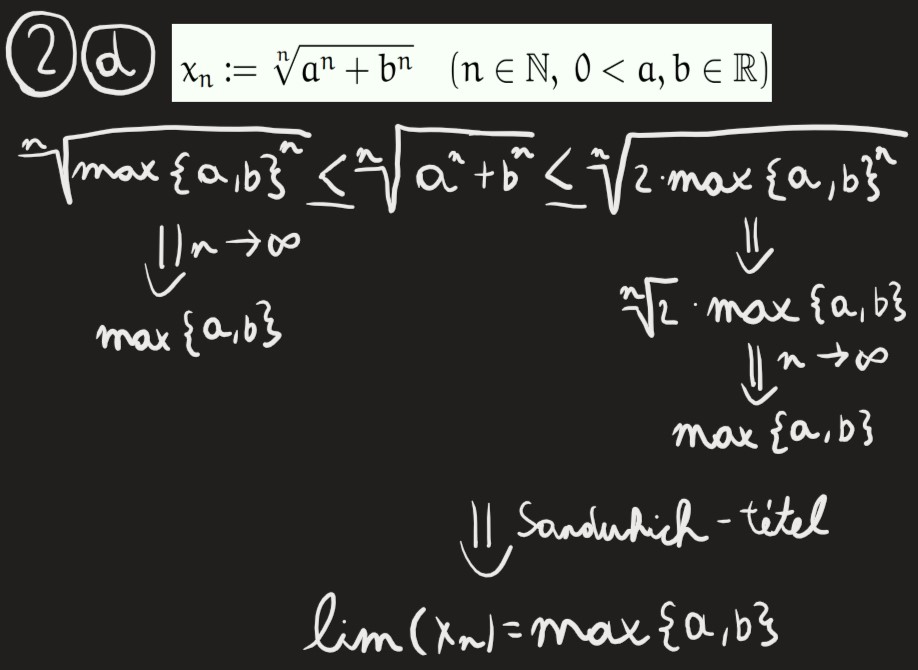 2 d xₙ := ⁿ√(aⁿ + bⁿ) (n ∈ ℕ, 0 < a, b ∈ ℝ)
ⁿ√(max {a,b}ⁿ) ≤ ⁿ√(aⁿ + bⁿ) ≤ ⁿ√(2·max {a,b}ⁿ)
⇓ n → ∞ ⇓
max {a,b} ⁿ√2 · max {a,b}
⇓ n → ∞
max {a,b}
⇓ Sandwhich - tétel
lim (xₙ) = max {a,b}